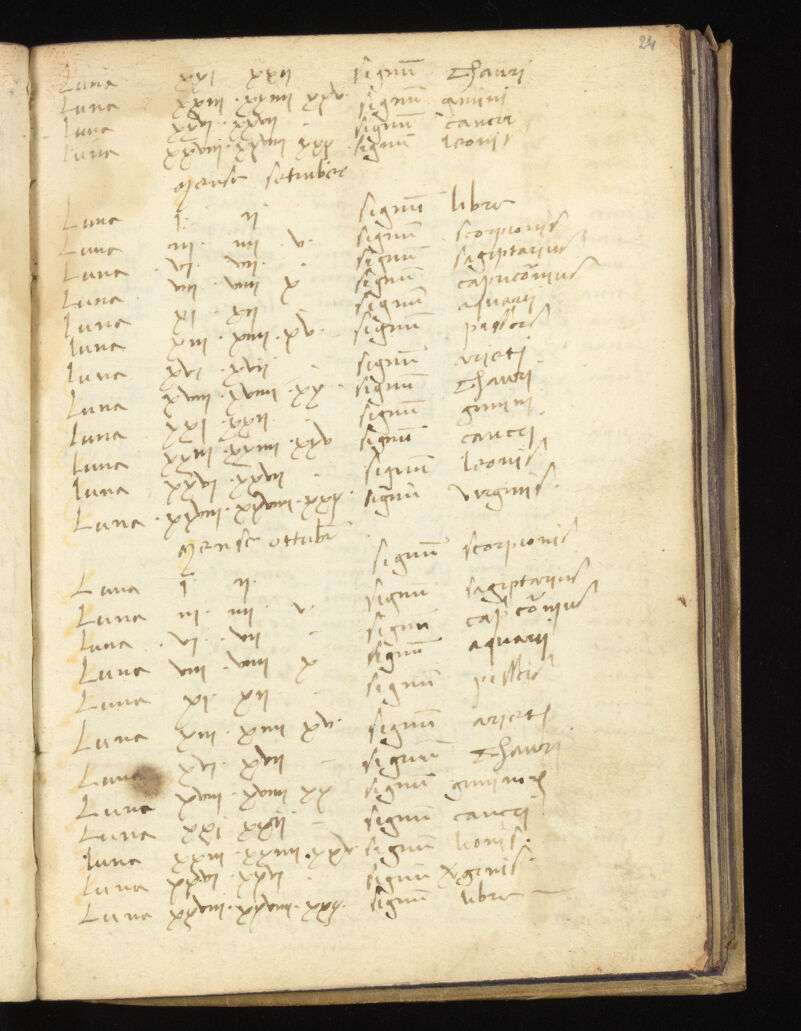 24
Luna xxi xxii signū Thauri
Luna xxiii · xxiiii xxv · signū gmini
Luna xxvi · xxvii – signū cancri
Luna xxviii · xxviiii xxx · signū leonis
Mense setinbre
Luna i · ii signū libre
Luna iii · iiii · v · signū scorpionis
Luna vi · vii · signū sagiptarius
Luna viii viiii x signū capricornius
Luna xi xii signū aquarii
Luna xiii · xiiii · xv · signū pisscis
Luna xvi · xvii – signū arieti
Luna xviii · xviiii · xx · signū Thauri
Luna xxi · xxii – signū gimini
Luna xxiii · xxiiii · xxv signū cancri
Luna xxvi · xxvii – signū leonis
Luna · xxviii · xxviiii · xxx · signū virginis ·
Mense ottubr
Luna i ii · signū scorpionis
Luna iii · iiii · v · signū sagiptarius
Luna · vi · vii – signū capicōrnius
Luna viii · viiii x signū aquarii
Luna xi · xii · signū pisscis
Luna xiii · xiiii xv · signū arieti
Luna xvi xvii – signū Thauri
Luna xviii · xviiii xx signū
Luna xxi xxii – signū cancri
Luna xxiii · xxiiii · xxv signū lionis ·
Luna xxvi · xxvi – signū
Luna xxviii · xxviiii · xxx · signū libre